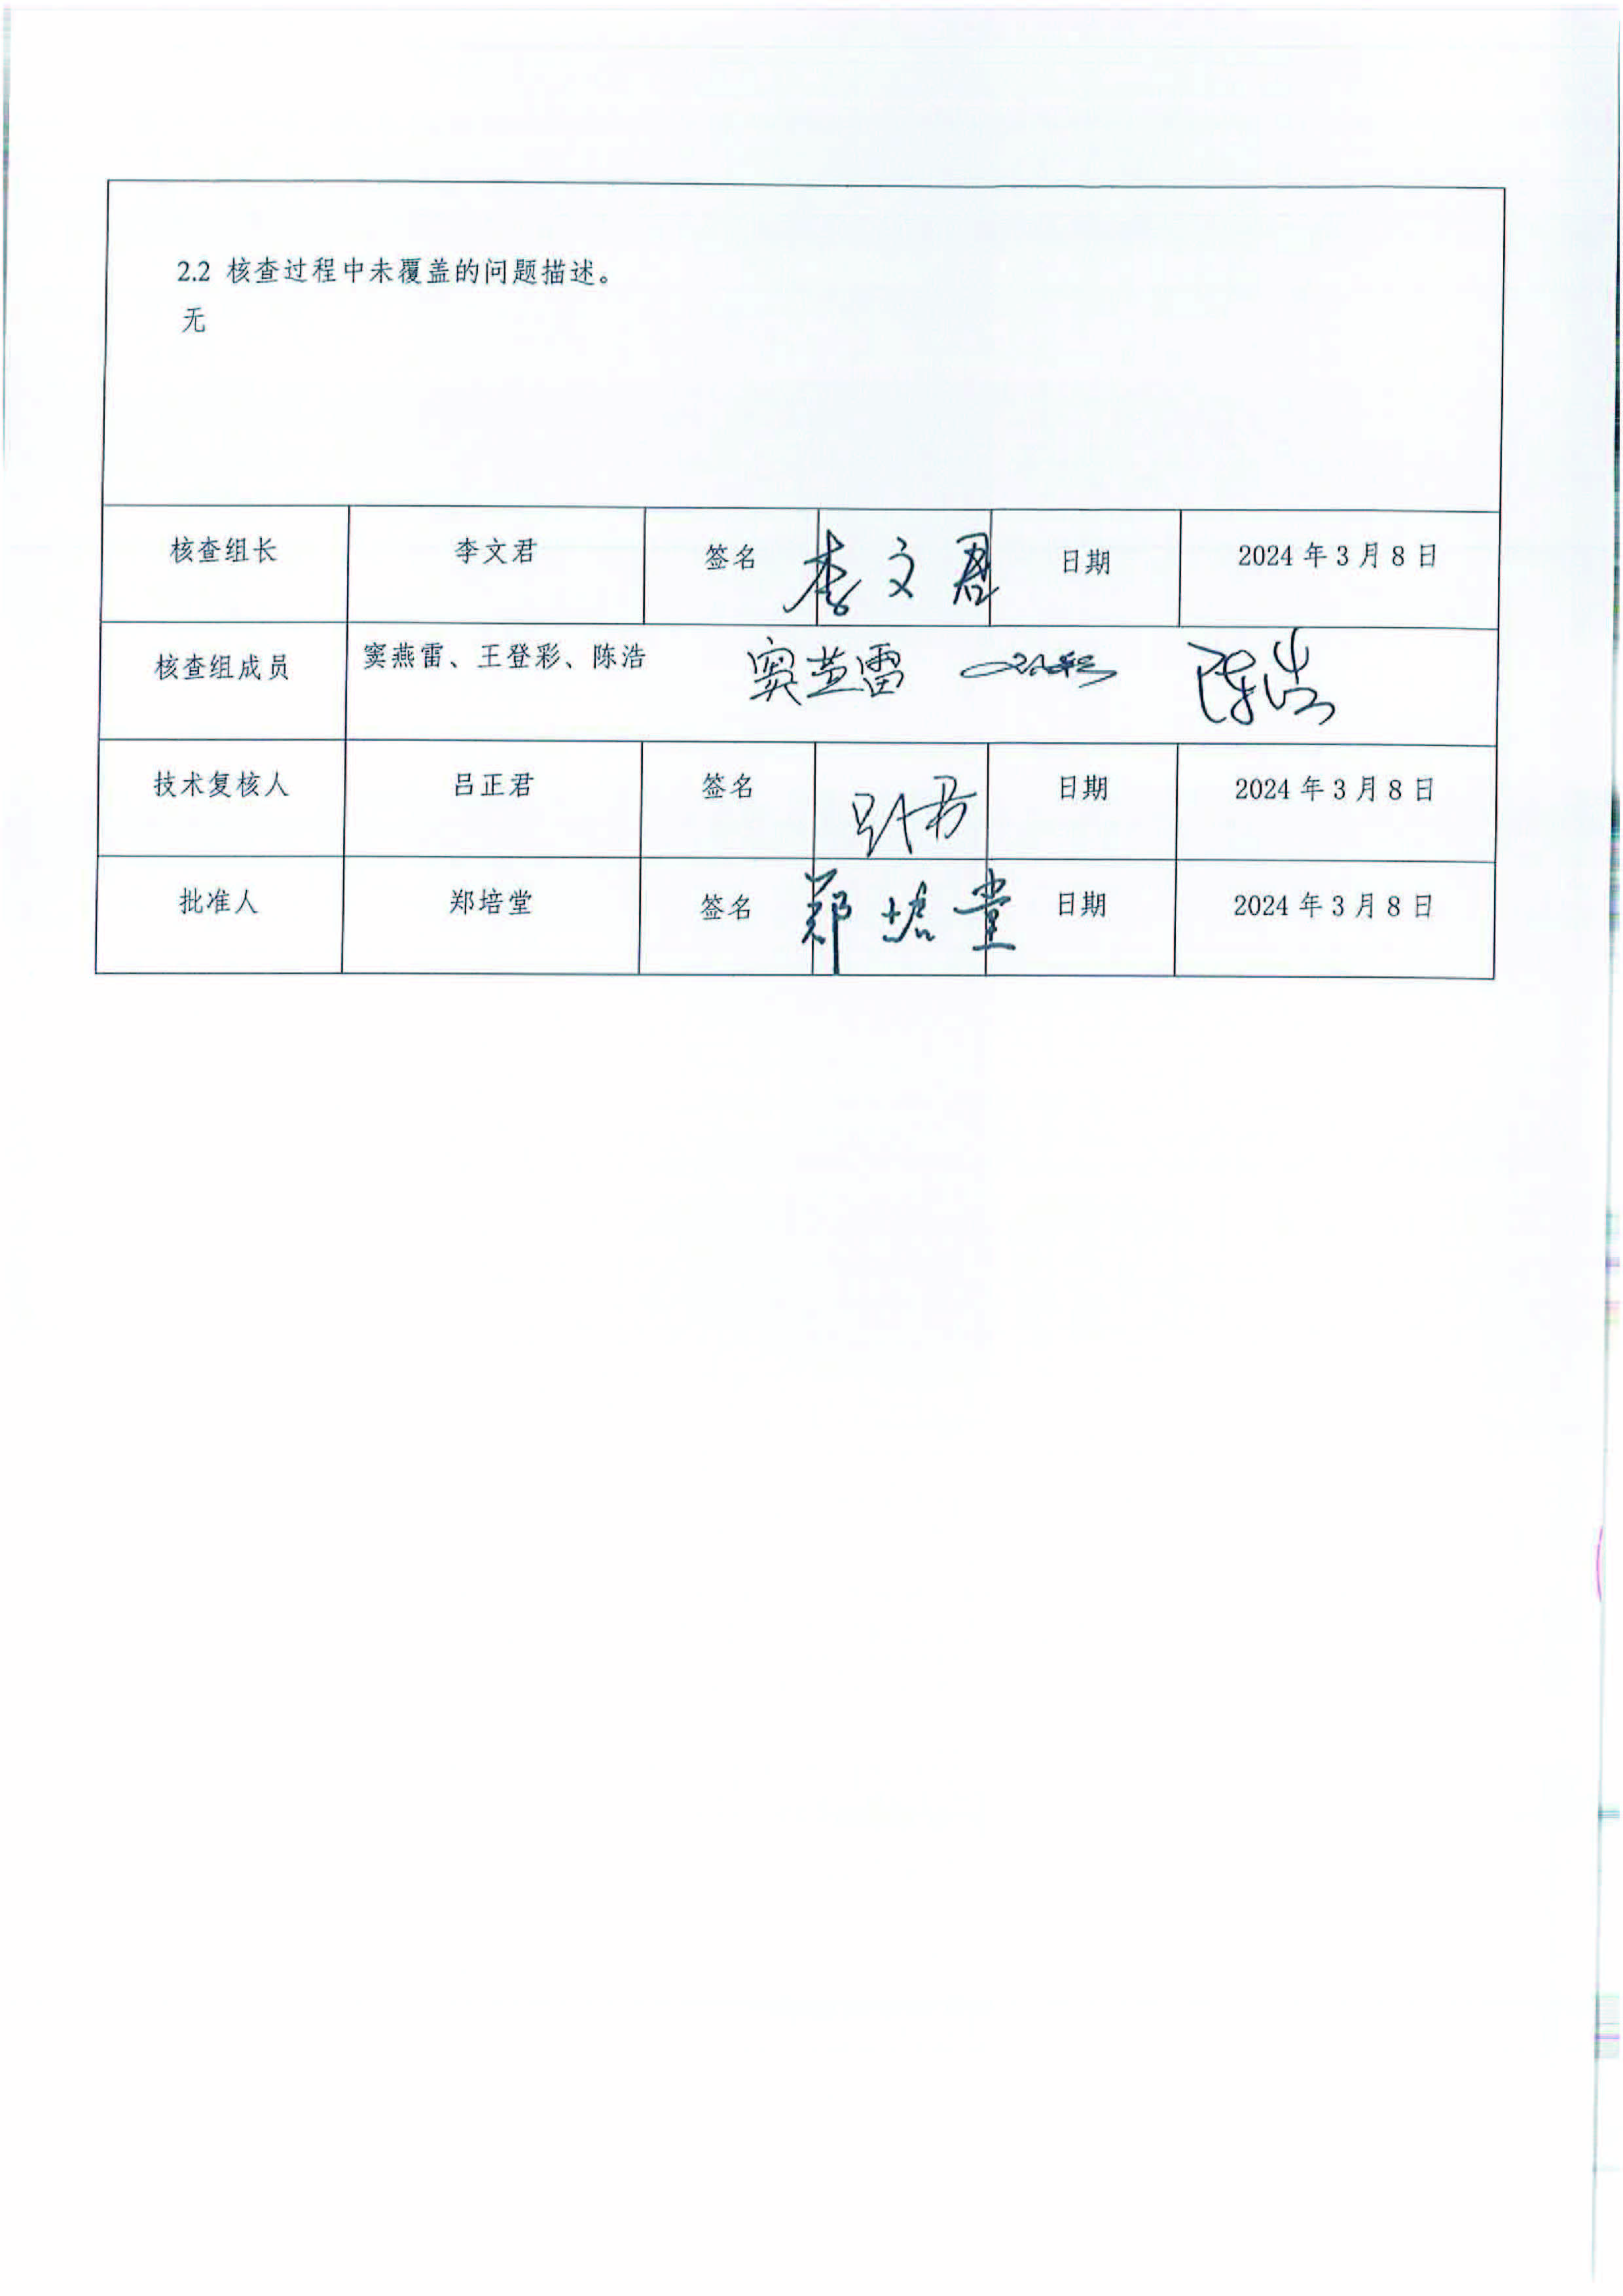 2.2 核查过程中未覆盖的问题描述。
无
核查组长 李文君 签名 李文君 日期 2024年3月8日
核查组成员 窦燕雷、王登彩、陈浩 窦燕雷 陈浩
技术复核人 吕正君 签名 日期 2024年3月8日
批准人 郑培堂 签名 郑培堂 日期 2024年3月8日